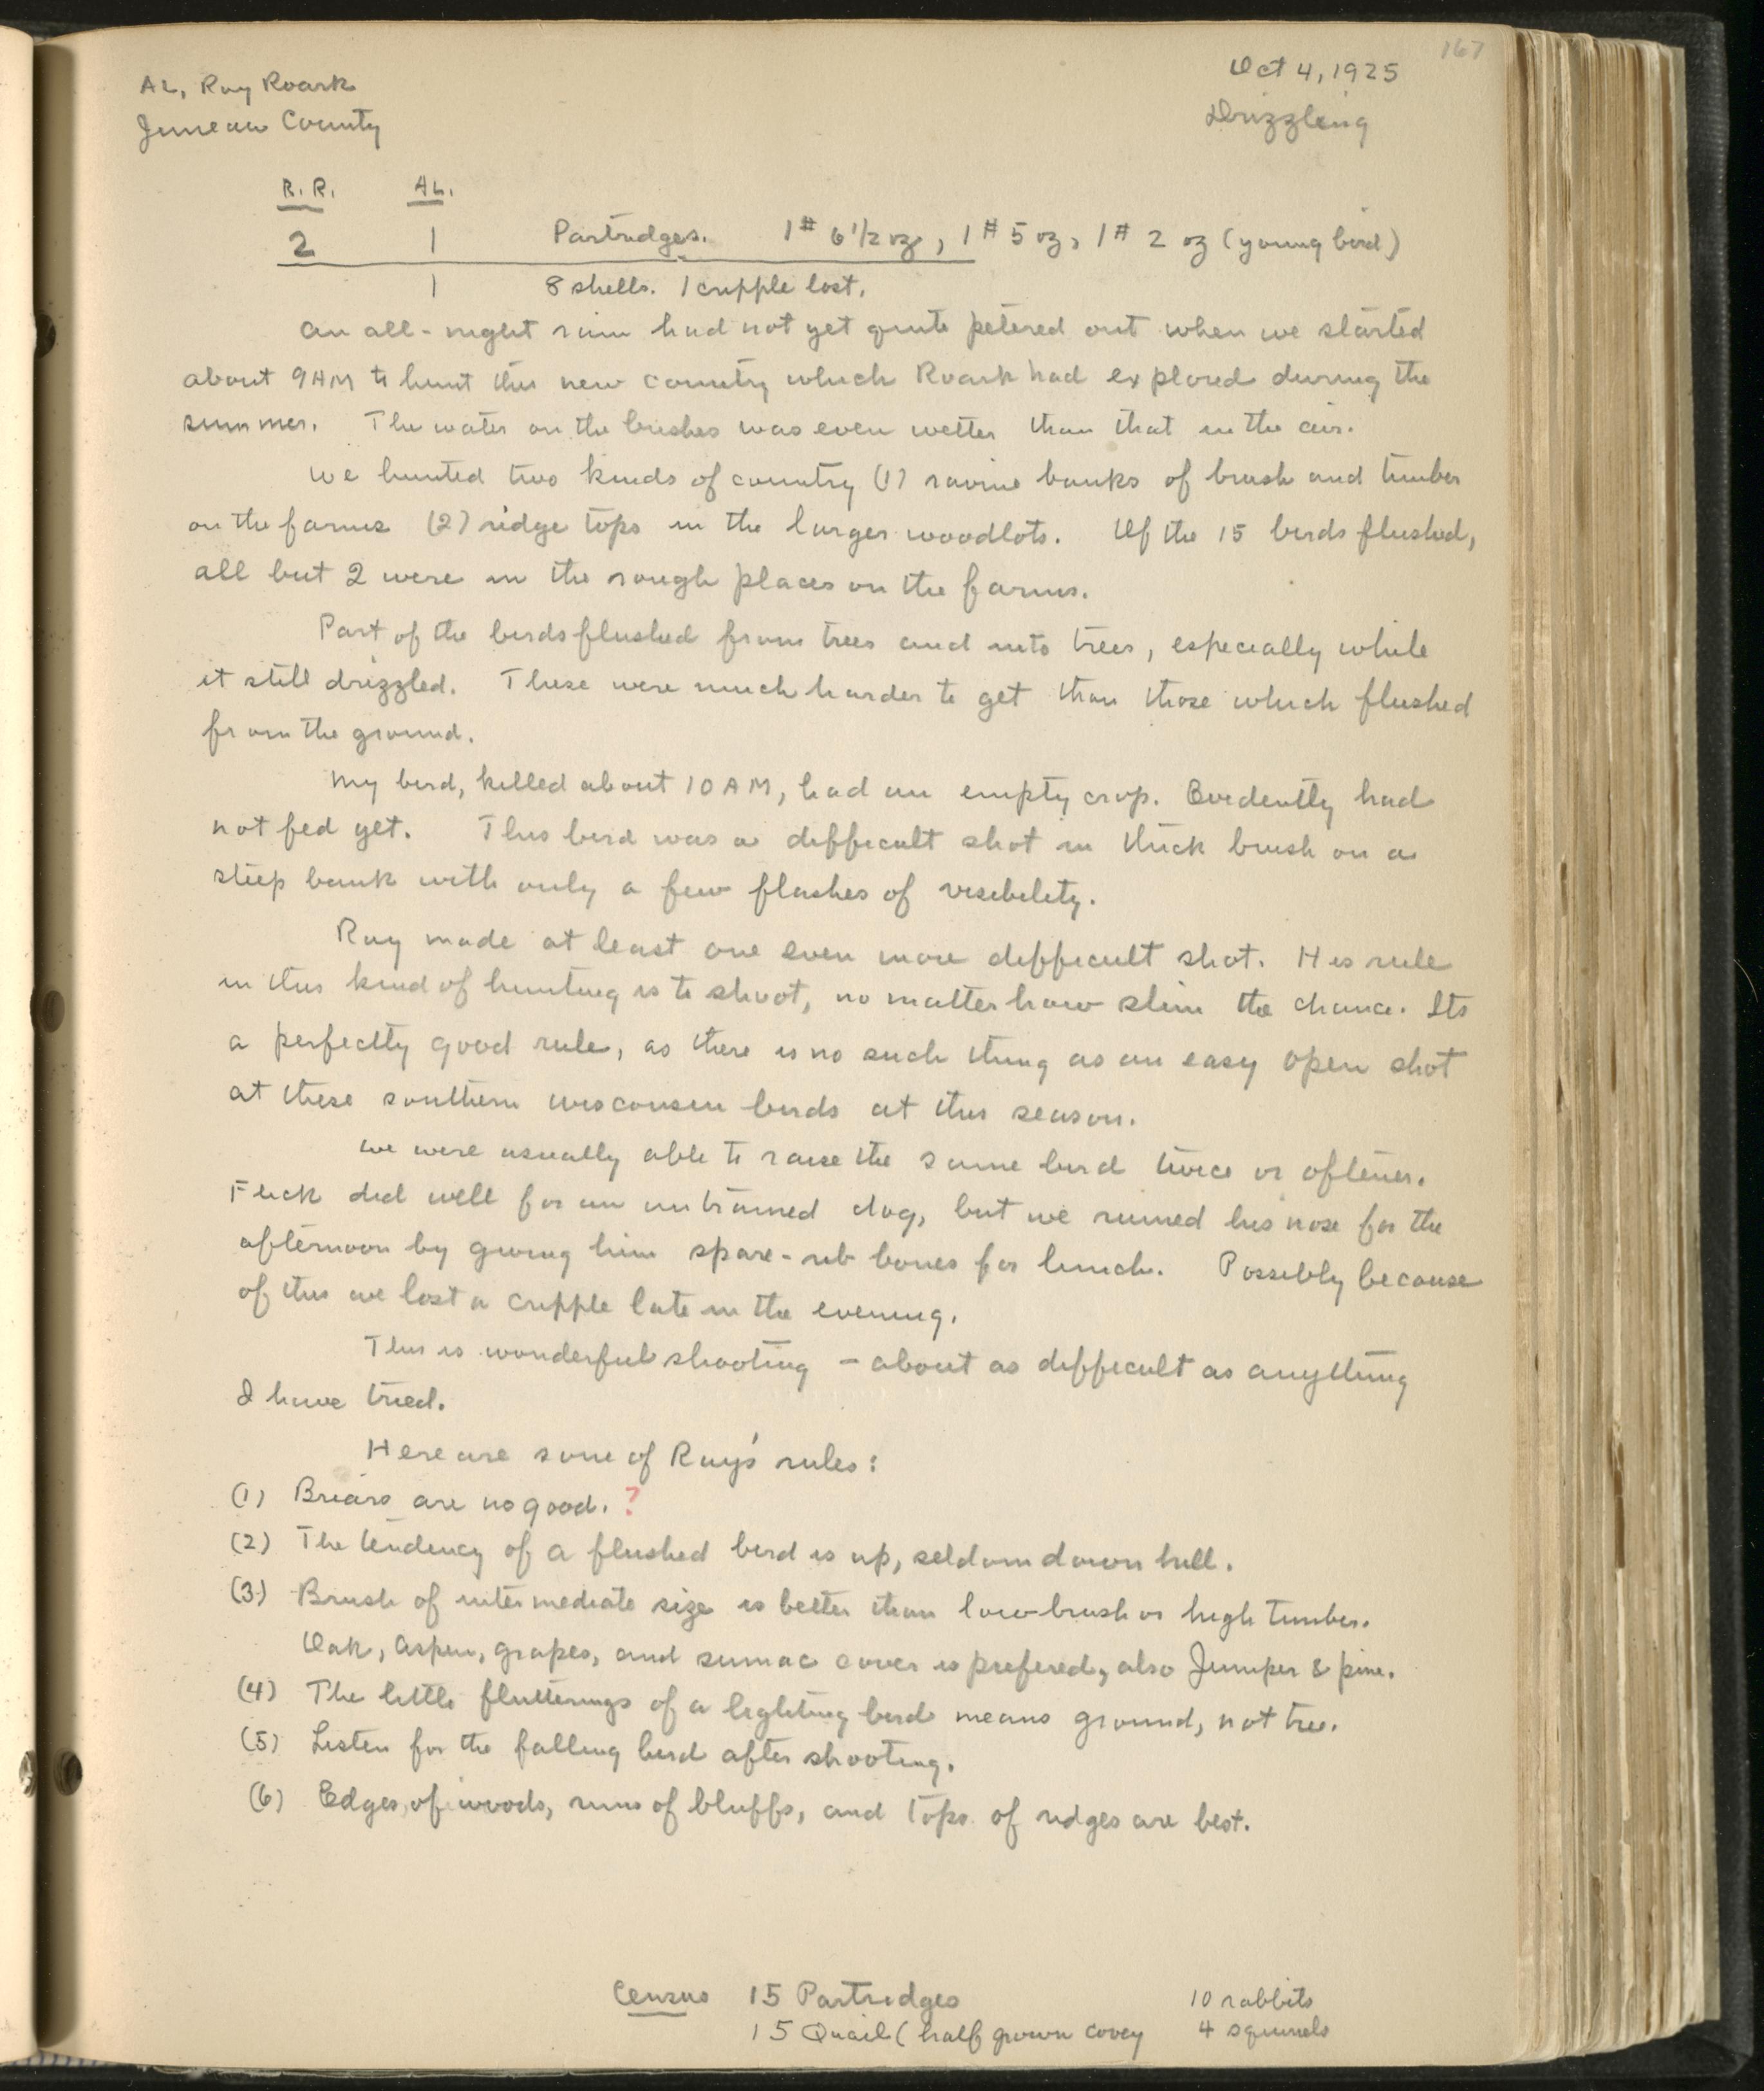 167
AL, Ray Roark
Oct 4, 1925
Juneau County
Drizzling
R.R. AL.
2 1 Partridges. 1# 6 1/2 oz, 1# 5 oz, 1# 2 oz (young bird)
1 8 shells. 1 cripple lost.
An all-night rain had not yet quite petered out when we started
about 9AM to hunt this new country which Roark had explored during the
summer. The water on the bushes was even wetter than that in the air.
We hunted two kinds of country (1) ravine banks of brush and timber
on the farms (2) ridge tops in the larger woodlots. Of the 15 birds flushed,
all but 2 were in the rough places on the farms.
Part of the birds flushed from trees and into trees, especially while
it still drizzled. These were much harder to get than those which flushed
from the ground.
My bird, killed about 10 AM, had an empty crop. Evidently had
not fed yet. This bird was a difficult shot in thick brush on a
steep bank with only a few flashes of visibility.
Ray made at least one even more difficult shot. His rule
in this kind of hunting is to shoot, no matter how slim the chance. Its
a perfectly good rule, as there is no such thing as an easy open shot
at these southern Wisconsin birds at this season.
We were usually able to raise the same bird twice or oftener.
Flick did well for an untrained dog, but we ruined his nose for the
afternoon by giving him spare-rib bones for lunch. Possibly because
of this we lost a cripple late in the evening.
This is wonderful shooting - about as difficult as anything
I have tried.
Here are some of Ray's rules:
(1) Briars are no good. ?
(2) The tendency of a flushed bird is up, seldom down hill.
(3) Brush of intermediate size is better than low brush or high timber.
Oak, aspen, grapes, and sumac cover is prefered, also Juniper & pine.
(4) The little flutterings of a lighting bird means ground, not tree.
(5) Listen for the falling bird after shooting.
(6) Edges of woods, rims of bluffs, and tops of ridges are best.
Census 15 Partridges 10 rabbits
15 Quail (half grown covey 4 squirrels